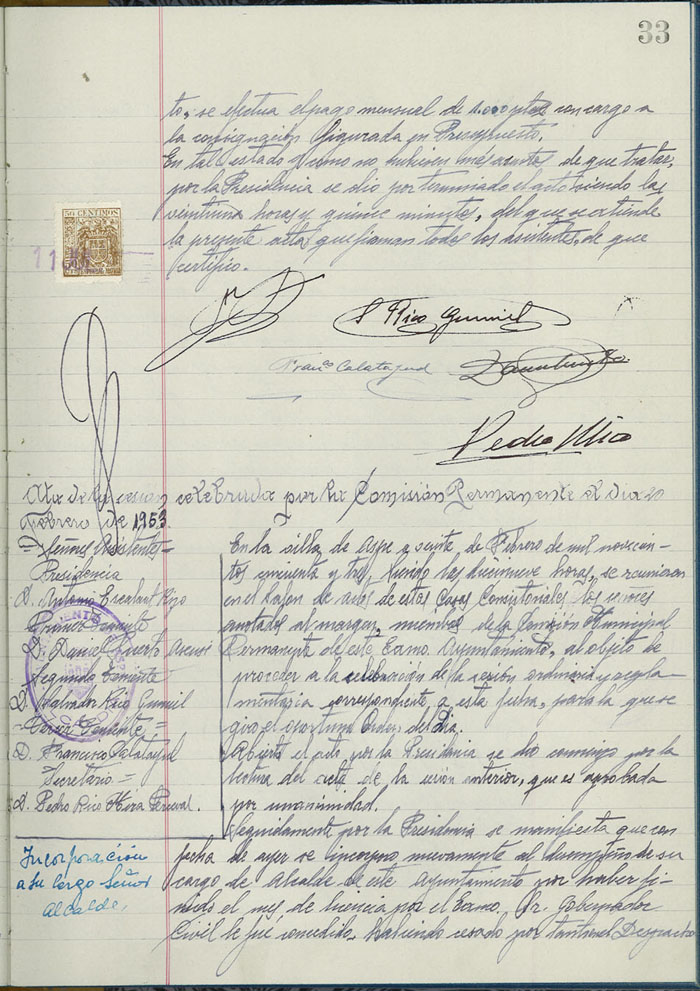 33
to, se efectua el pago mensual de 1.000 ptas con cargo a
la consignación figurada en Presupuesto.
En tal estado y como no hubiesen más asuntos de que tratar,
por la Presidencia se dio por terminado el acto siendo las
veintiuna horas y quince minutos, del que se extiende
la presente acta que firman todos los asistentes, de que
certifico.
50 CENTIMOS
S Rico Gumiel
Franco Calatayud
Pedro Mico
Acta de la sesión celebrada por la Comisión Permanente el dia 20
Febrero de 1953
= Señores Asistentes =
Presidencia
D. Antonio
Primer Teniente
D. Daniel Puerto Asensi
Segundo Teniente
D. Salvador Rico Gumiel
= Tercer Teniente =
D. Francisco Calatayud
Secretario =
D. Pedro Rico
En la villa de Aspe a veinte de Febrero de mil novecien-
tos cincuenta y tres, siendo las diecinueve horas, se reunieron
en el salon de actos de estas Casas Consistoriales los señores
anotados al margen, miembros de la Comisión Municipal
Permanente de este Excmo. Ayuntamiento, al objeto de
proceder a la celebración de la sesión ordinaria y regla-
mentaria correspondiente a esta fecha, para la que se
giró el oportuno Orden del Dia.
Abierto el acto por la Presidencia se dio comienzo por la
lectura del acta de la sesion anterior, que es aprobada
por unanimidad.
Seguidamente por la Presidencia se manifiesta que con
fecha de ayer se incorporo nuevamente al desempeño de su
cargo de Alcalde de este Ayuntamiento por haber ter-
minado el mes de licencia por el Excmo. Sr. Gobernador
Civil le fue concedido, habiendo cesado por tanto en el Despacho
Incorporación
a su cargo Señor
Alcalde,